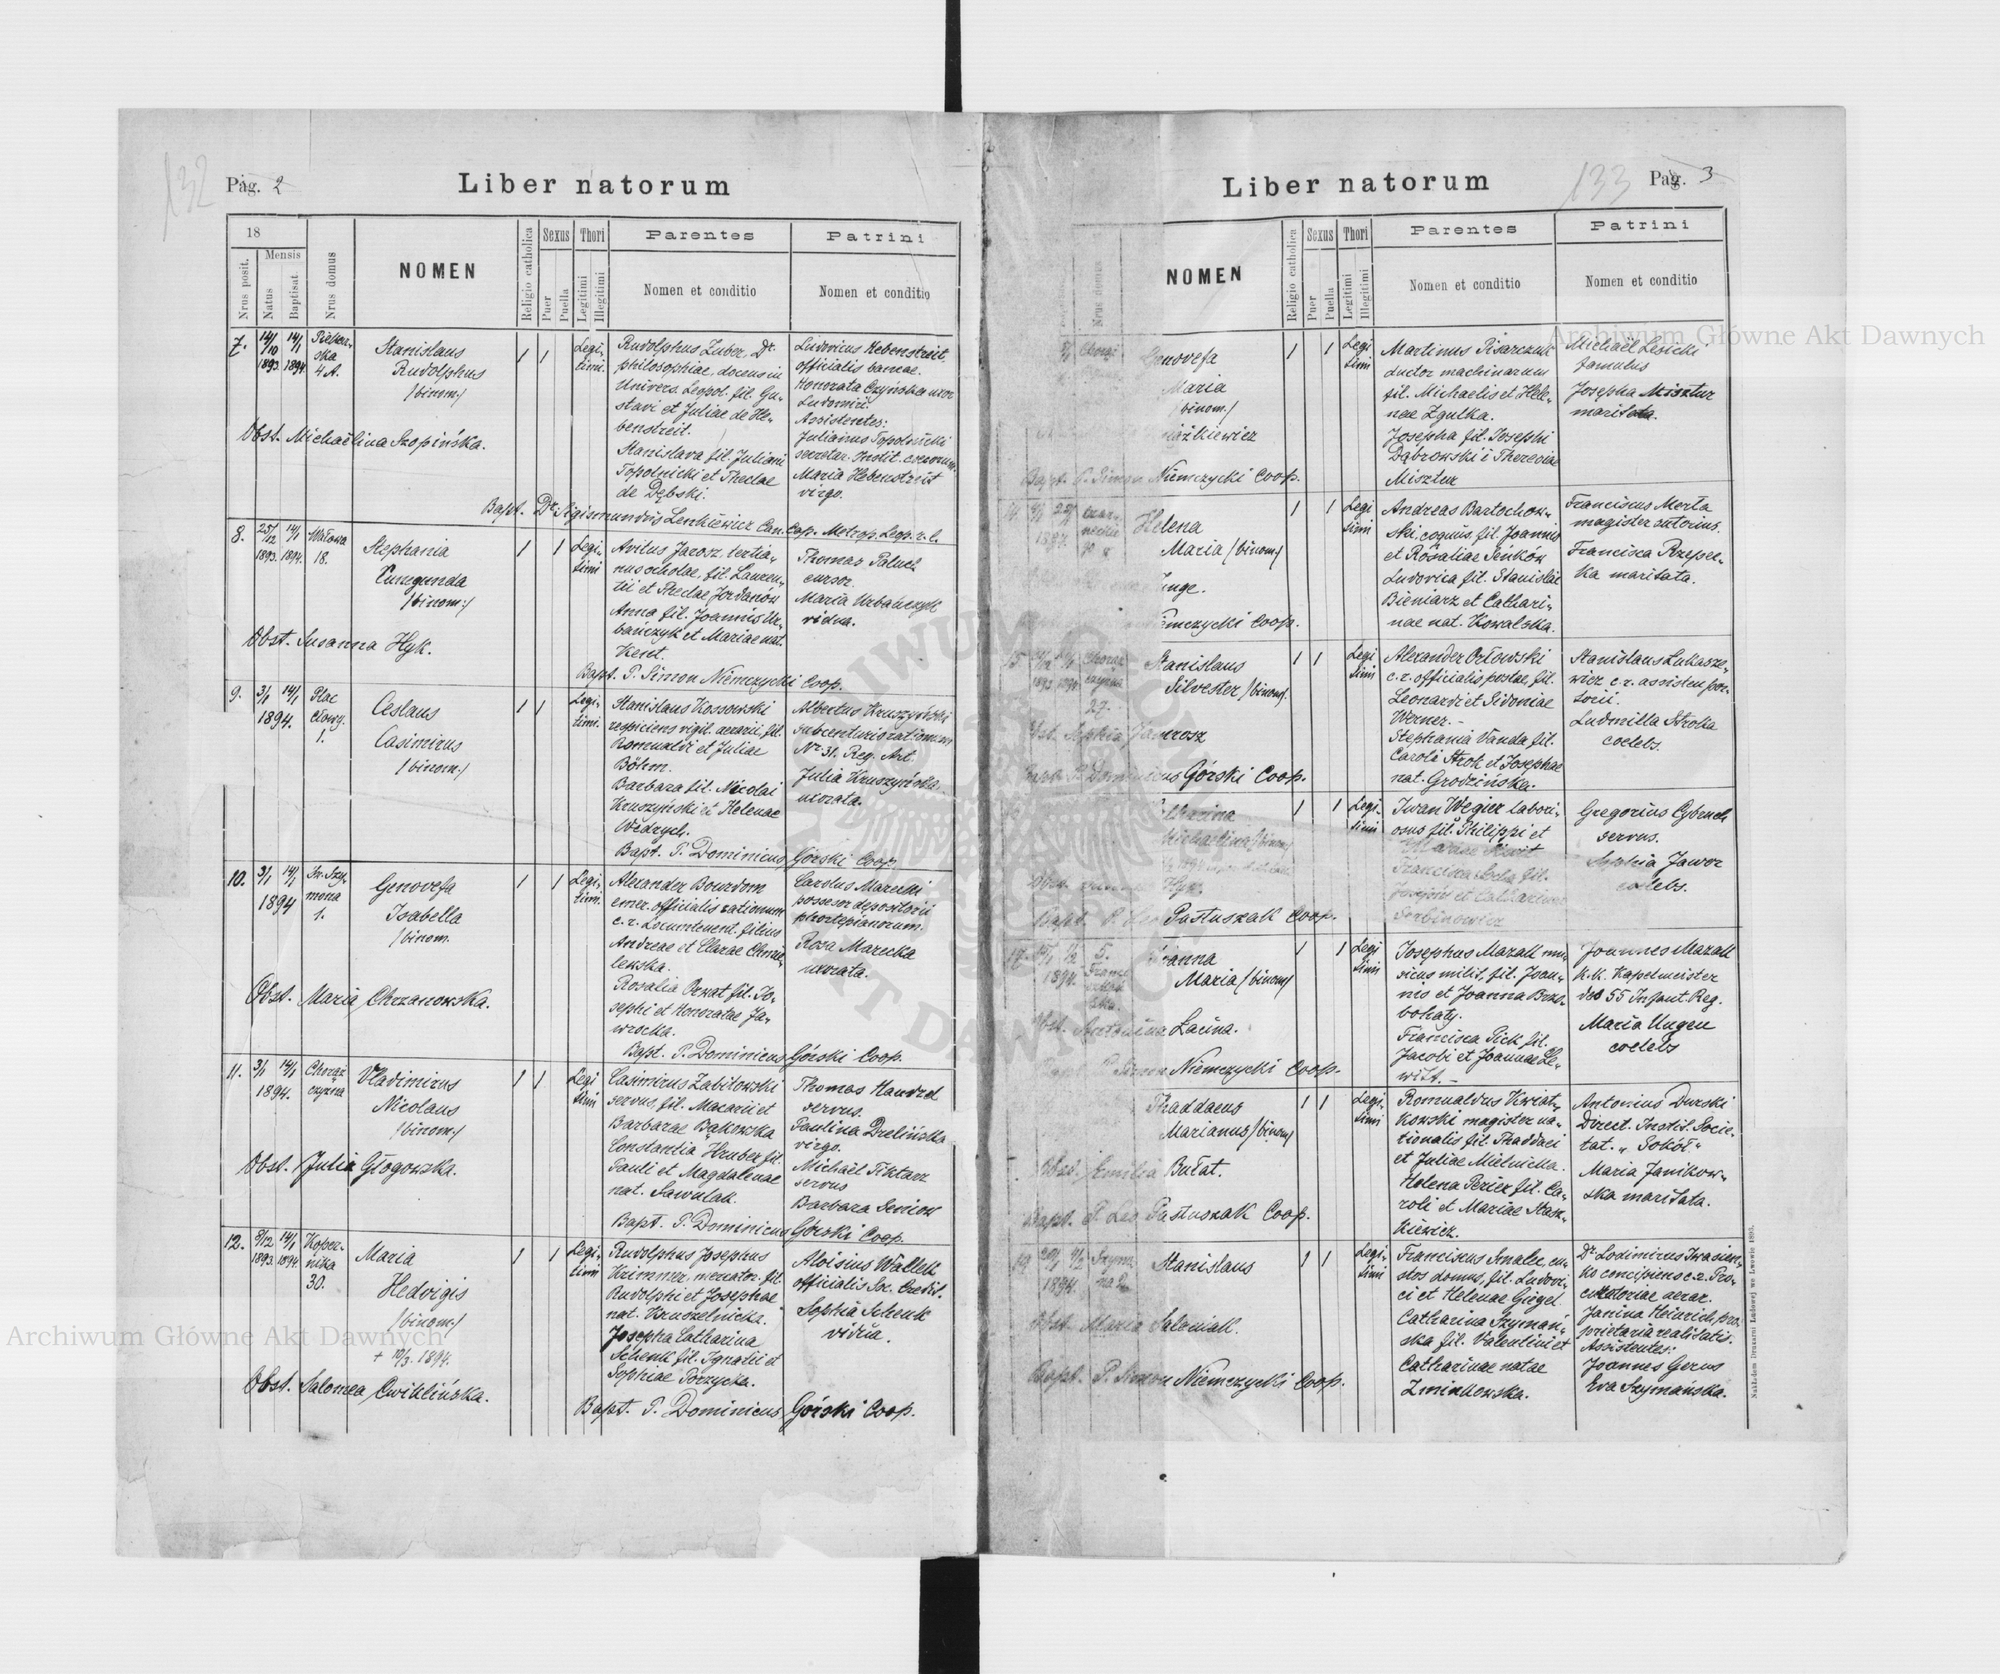 132
Pag. 2
Liber natorum
18
Mensis
Nrus posit.
Natus
Baptisat.
Nrus domus
NOMEN
Religio catholica
Sexus
Puer
Puella
Thori
Legitimi
Illegitimi
Parentes
Nomen et conditio
Patrini
Nomen et conditio
7.
14/10 1893
14/1 1894
4 A.
Stanislaus
Rudolphus
/binom./
1 1
Legi-
timi.
Rudolphus Zuber, Dr.
philosophiae, docens in
Univers. Leopol. fil. Gu-
stavi et Juliae de He-
benstreit.
Stanislava fil. Juliani
Topolnicki et Theclae
de Dębski.
Ludovicus Hebenstreit
officialis bancae.
Honorata Czyńska uxor
Ludomiri.
Assistentes:
Julianus Topolnicki
secretar. Instit.
Maria Hebenstreit
virgo.
Obst. Michaëlina Szopińska.
Bapt. Dr. Sigismundus Lenkiewicz Can. Cap. Metrop. Leop. r. l.
8.
25/12 1893.
14/1 1894.
Wałowa
18.
Stephania
Cunegunda
/binom./
1 1
Legi-
timi
Avitus Jarosz tertia-
nus scholae, fil. Lauren-
tii et Theclae Jordanów
Anna fil. Joannis Ur-
bańczyk et Mariae nat.
Kent.
Thomas Paluch
cursor.
Maria Urbańczyk
vidua.
Obst. Susanna Hyk.
Bapt. P. Simon Niemczycki Coop.
9.
3/1 14/1
1894.
Plac
Cłowy.
1.
Ceslaus
Casimirus
/binom./
1 1
Legi-
timi.
Stanislaus Kossowski
respiciens vigil. aerarii, fil.
Romualdi et Juliae
Böhm.
Barbara fil. Nicolai
Kruszyński et Helenae
Wedrych.
Albertus Kruszyński
subcenturio rationum
Nr. 31. Reg. Art.
Julia Kruszyńska
uxorata.
Bapt. P. Dominicus Górski Coop.
10.
3/1 14/1
1894
Św. Szy-
mona
1.
Genovefa
Isabella
/binom.
1 1
Legi-
timi.
Alexander Bourdom
emer. officialis rationum
c. r. Locumtenent. filius
Andreae et Clarae Chmie-
lewska.
Rosalia Orwat fil. Jo-
sephi et Honoratae Ja-
wrocka.
Carolus Marecki
possesor depositorii
phortepianorum.
Rosa Marecka
uxorata.
Obst. Maria Chrzanowska.
Bapt. P. Dominicus Górski Coop.
11.
3/1 14/1
1894.
Chorąż
czyzna
Vladimirus
Nicolaus
/binom./
1 1
Legi
timi
Casimirus Zabilowski
servus, fil. Macarii et
Barbarae Bąkowska
Constantia Hruber fil.
Pauli et Magdalenae
nat. Sawulak.
Thomas Handzel
servus.
Paulina Drelińska
virgo.
Michaël Tiktarz
servus
Barbara Seniow
Obst. Julia Głogowska.
Bapt. P. Dominicus Górski Coop.
12.
8/12 1893.
14/1 1894
Koper-
nika
30.
Maria
Hedvigis
/binom./
+ 10/3. 1894.
1 1
Legi-
timi
Rudolphus Josephus
Krimmer, mercator. fil.
Rudolphi et Josephae
nat. Kruszelnicka.
Josepha Catharina
Schenk fil. Ignatii et
Sophiae Porzycka.
Aloisius Wallek
officialis Soc. Credit.
Sophia Schenk
vidua.
Obst. Salomea Cwiklińska.
Bapt. P. Dominicus Górski Coop.
133
Pag. 3
Liber natorum
Nrus domus
NOMEN
Religio catholica
Sexus
Puer
Puella
Thori
Legitimi
Illegitimi
Parentes
Nomen et conditio
Patrini
Nomen et conditio
Genovefa
Maria
/binom./
1 1
Legi
timi
Martinus Pisarczuk
ductor machinarum
fil. Michaelis et Hele-
nae Zgulka.
Josepha fil. Josephi
Dąbrowski i Theresiae
Misztur
Michaël Lesicki
famulus
Josepha Misztur
maritata.
Bapt. P. Simon Niemczycki Coop.
Helena
Maria /binom/
1 1
Legi
timi
Andreas Bartochow-
ski, coquus fil. Joannis
et Rosaliae Seńków
Ludovica fil. Stanislai
Bieniarz et Cathari-
nae nat. Kowalska.
Franciscus Merta
magister sutorius.
Francisca Rzepec-
ka maritata.
Niemczycki Coop.
15
27.
Stanislaus
Silvester /binom/.
1 1
Legi
timi
Alexander Orłowski
c. r. officialis postae, fil.
Leonardi et Sidoniae
Werner. -
Stephania Vanda fil.
Caroli Strok et Josephae
nat. Grodzińska.
Stanislaus Łukasze-
wicz c. r. assistens por-
torii.
Ludmilla Stroka
coelebs.
Obst. Sophia Jamrosz
Bapt. P. Dominicus Górski Coop.
Catharina
Michaelina /binom/
1 1
Legi-
timi
Iwan Węgier labori-
osus fil. Philippi et
Francisca Socha fil.
Josephi et Catharinae
Serbinowicz
Gregorius Cybruch
servus.
Sophia Jawor
coelebs.
Hyk.
Bapt. P. Leo Pastuszak Coop.
17.
1894.
5.
Joanna
Maria /binom/
1 1
Legi
timi
Josephus Mazall mu-
sicus milit. fil. Joan-
nis et Joanna Brzo-
bohaty.
Francisca Pick fil.
Jacobi et Joannae Le-
witt. -
Joannes Mazall
k. k. Kapelmeister
des 55 Infant. Reg.
Maria Ungeu
coelebs
Obst. Antonina Lacina.
Bapt. P. Simon Niemczycki Coop.
Thaddaeus
Marianus /binom/
1 1
Legi-
timi
Romualdus Kwiat-
kowski magister na-
tionalis fil. Thaddaei
et Juliae Mielnicka.
Helena Perier fil. Ca-
roli et Mariae Stasz-
kiewicz.
Antonius Durski
Direct. Instit. Socie-
tat. „Sokół“
Maria Janikow-
ska maritata.
Obst. Emilia Bułat.
Bapt. P. Leo Pastuszak Coop.
19
1894.
Stanislaus
1 1
Legi-
timi
Franciscus Smalec, cu-
stos domus, fil. Ludovi-
ci et Helenae Giegel
Catharina Szymań-
ska fil. Valentini et
Catharinae natae
Zminkowska.
Dr. Lodimirus Iwasien-
ko concipiens c. r. Pro-
curatoriae aerar.
Janina Heinrich, pro-
prietaria realitatis.
Assistentes:
Joannes Gerus
Eva Szymańska.
Obst. Maria Saloniak.
Bapt. P. Simon Niemczycki Coop.
Nakładem Drukarni Ludowej we Lwowie 1893.
Archiwum Główne Akt Dawnych
Archiwum Główne Akt Dawnych